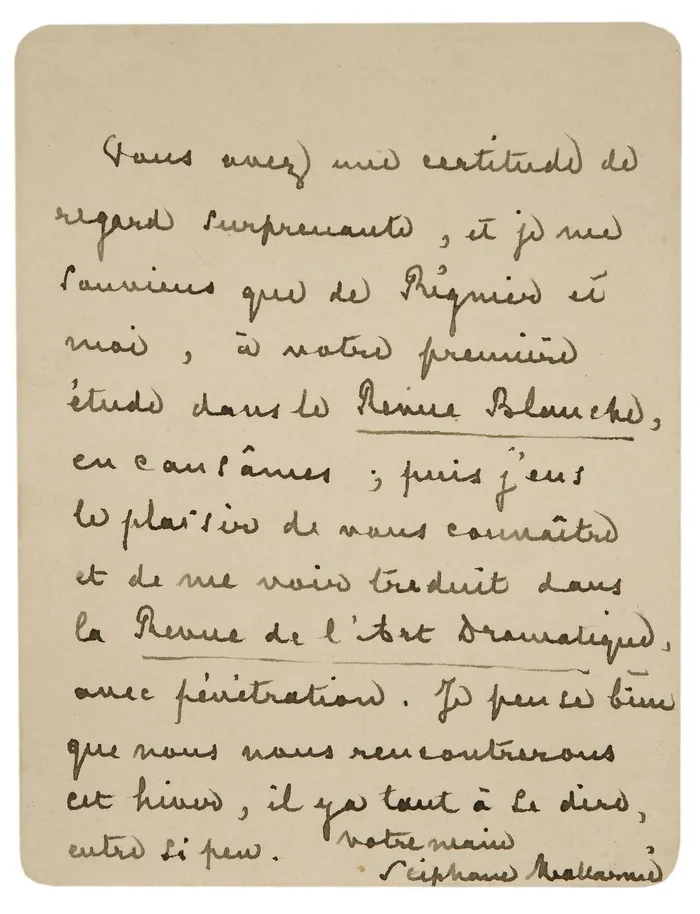 Vous avez une certitude de
regard surprenante, et je me
souviens que de Régnier et
moi, à votre première
étude dans le Revue Blanche,
en causâmes ; puis j'eus
le plaisir de vous connaître
et de me voir traduit dans
la Revue de l'Art Dramatique,
avec pénétration. Je pense bien
que nous nous rencontrerons
cet hiver, il y a tant à se dire,
entre si peu. votre main
Stéphane Mallarmé